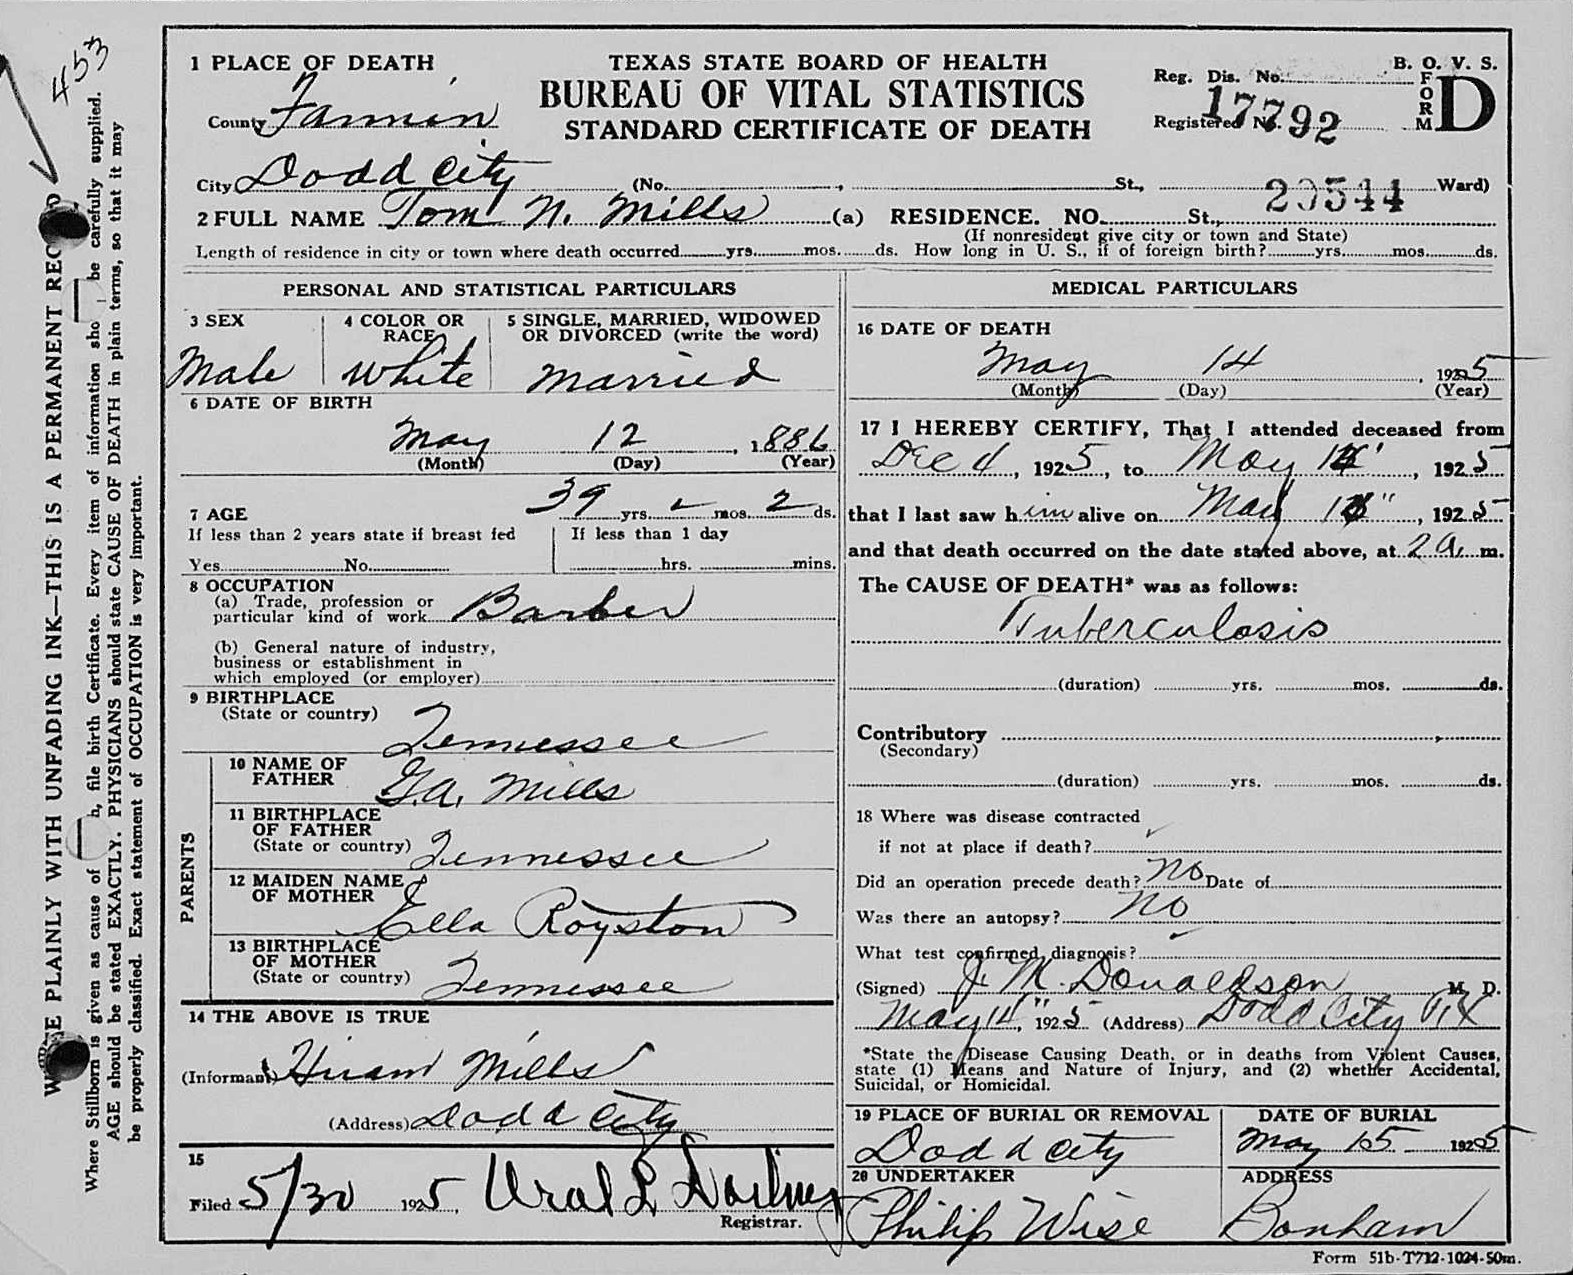 453
WRITE PLAINLY WITH UNFADING INK—THIS IS A PERMANENT REC
Where Stillborn is given as cause of h, file birth Certificate. Every item of information sho be carefully supplied.
AGE should be stated EXACTLY. PHYSICIANS should state CAUSE OF DEATH in plain terms, so that it may
be properly classified. Exact statement of OCCUPATION is very important.
1 PLACE OF DEATH
TEXAS STATE BOARD OF HEALTH
BUREAU OF VITAL STATISTICS
STANDARD CERTIFICATE OF DEATH
B. O. V. S.
FORM D
Reg. Dis. No.
Registered No. 17792
County Fannin
City Dodd City (No. , St., 20544 Ward)
2 FULL NAME Tom N. Mills (a) RESIDENCE. NO. St.,
(If nonresident give city or town and State)
Length of residence in city or town where death occurred yrs. mos. ds. How long in U. S., if of foreign birth? yrs. mos. ds.
PERSONAL AND STATISTICAL PARTICULARS
3 SEX
Male
4 COLOR OR RACE
White
5 SINGLE, MARRIED, WIDOWED
OR DIVORCED (write the word)
Married
6 DATE OF BIRTH
May 12, 1886
(Month) (Day) (Year)
7 AGE 39 yrs. mos. 2 ds.
If less than 2 years state if breast fed
Yes No
If less than 1 day
hrs. mins.
8 OCCUPATION
(a) Trade, profession or
particular kind of work Barber
(b) General nature of industry,
business or establishment in
which employed (or employer)
9 BIRTHPLACE
(State or country) Tennessee
PARENTS
10 NAME OF
FATHER G.A. Mills
11 BIRTHPLACE
OF FATHER
(State or country) Tennessee
12 MAIDEN NAME
OF MOTHER Ella Royston
13 BIRTHPLACE
OF MOTHER
(State or country) Tennessee
14 THE ABOVE IS TRUE
(Informant) Hiram Mills
(Address) Dodd City
15
Filed 5/30 1925, Ural L
Registrar.
MEDICAL PARTICULARS
16 DATE OF DEATH
May 14, 1925
(Month) (Day) (Year)
17 I HEREBY CERTIFY, That I attended deceased from
Dec 4, 1925, to May 14, 1925
that I last saw him alive on May , 1925
and that death occurred on the date stated above, at 2 a. m.
The CAUSE OF DEATH* was as follows:
Tuberculosis
(duration) yrs. mos. ds.
Contributory
(Secondary)
(duration) yrs. mos. ds.
18 Where was disease contracted
if not at place if death?
Did an operation precede death? No Date of
Was there an autopsy? No
What test confirmed diagnosis?
(Signed) J. M. Donaldson M. D.
May 14", 1925 (Address) Dodd City Tex
*State the Disease Causing Death, or in deaths from Violent Causes,
state (1) Means and Nature of Injury, and (2) whether Accidental,
Suicidal, or Homicidal.
19 PLACE OF BURIAL OR REMOVAL
Dodd City
DATE OF BURIAL
May 15 1925
20 UNDERTAKER
Philip Wise
ADDRESS
Bonham
Form 51b-T712-1024-50m.